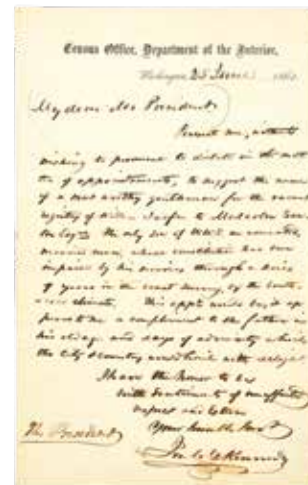 Census Office, Department of the Interior,
Washington, 25 June 186
My dear Mr President
Permit me, without
wishing to presume to dictate in the mat
ter of appointments, to suggest the name
of a most worthy gentleman for the vacant
to Malcolm
the only son of an
man, whose constitution has been
impaired by his services through a series
of years in the coast survey, by the
climate. This appt would be
a compliment to the father in
his old age and days of adversity which
the City & Country would hail with delight
I have the honor to be
with sentiments of unaffected
respect and esteem
Your humble Servt
Jos. C. G. Kennedy
The President